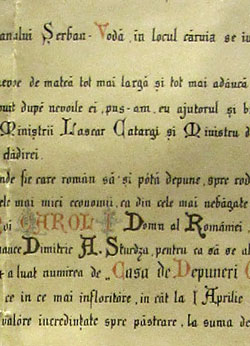 anului Șerban-Vodă, în locul căruia se
nevoe de matcă tot mai largă și tot mai adâncă
după nevoile ei, pus-am, eu ajutorul și
Miniștrii Lascar Catargi și Ministru d
dădirei.
nde fie care român să-și pótă depune, spre rod
cele mai mici economii, ca din cele mai nebăgate
oi CAROL I Domn al României,
nance Dimitrie A. Sturdza, pentru ca să se al
a luat numirea de „Casa de Depuneri
e in ce mai infloritóre, in cât la 1 Aprilie
valóre incredințate spre păstrare, la suma de